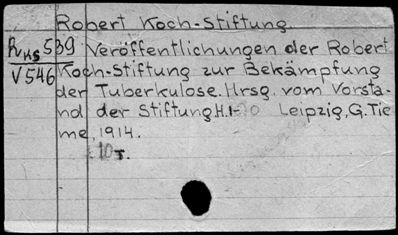 Robert Koch-Stiftung
RHKS 539
V 546
Veröffentlichungen der Robert
Koch-Stiftung zur Bekämpfung
der Tuberkulose. Hrsg. vom Vorsta-
nd der Stiftung H.1- Leipzig, G. Tie
me, 1914.
10 T.